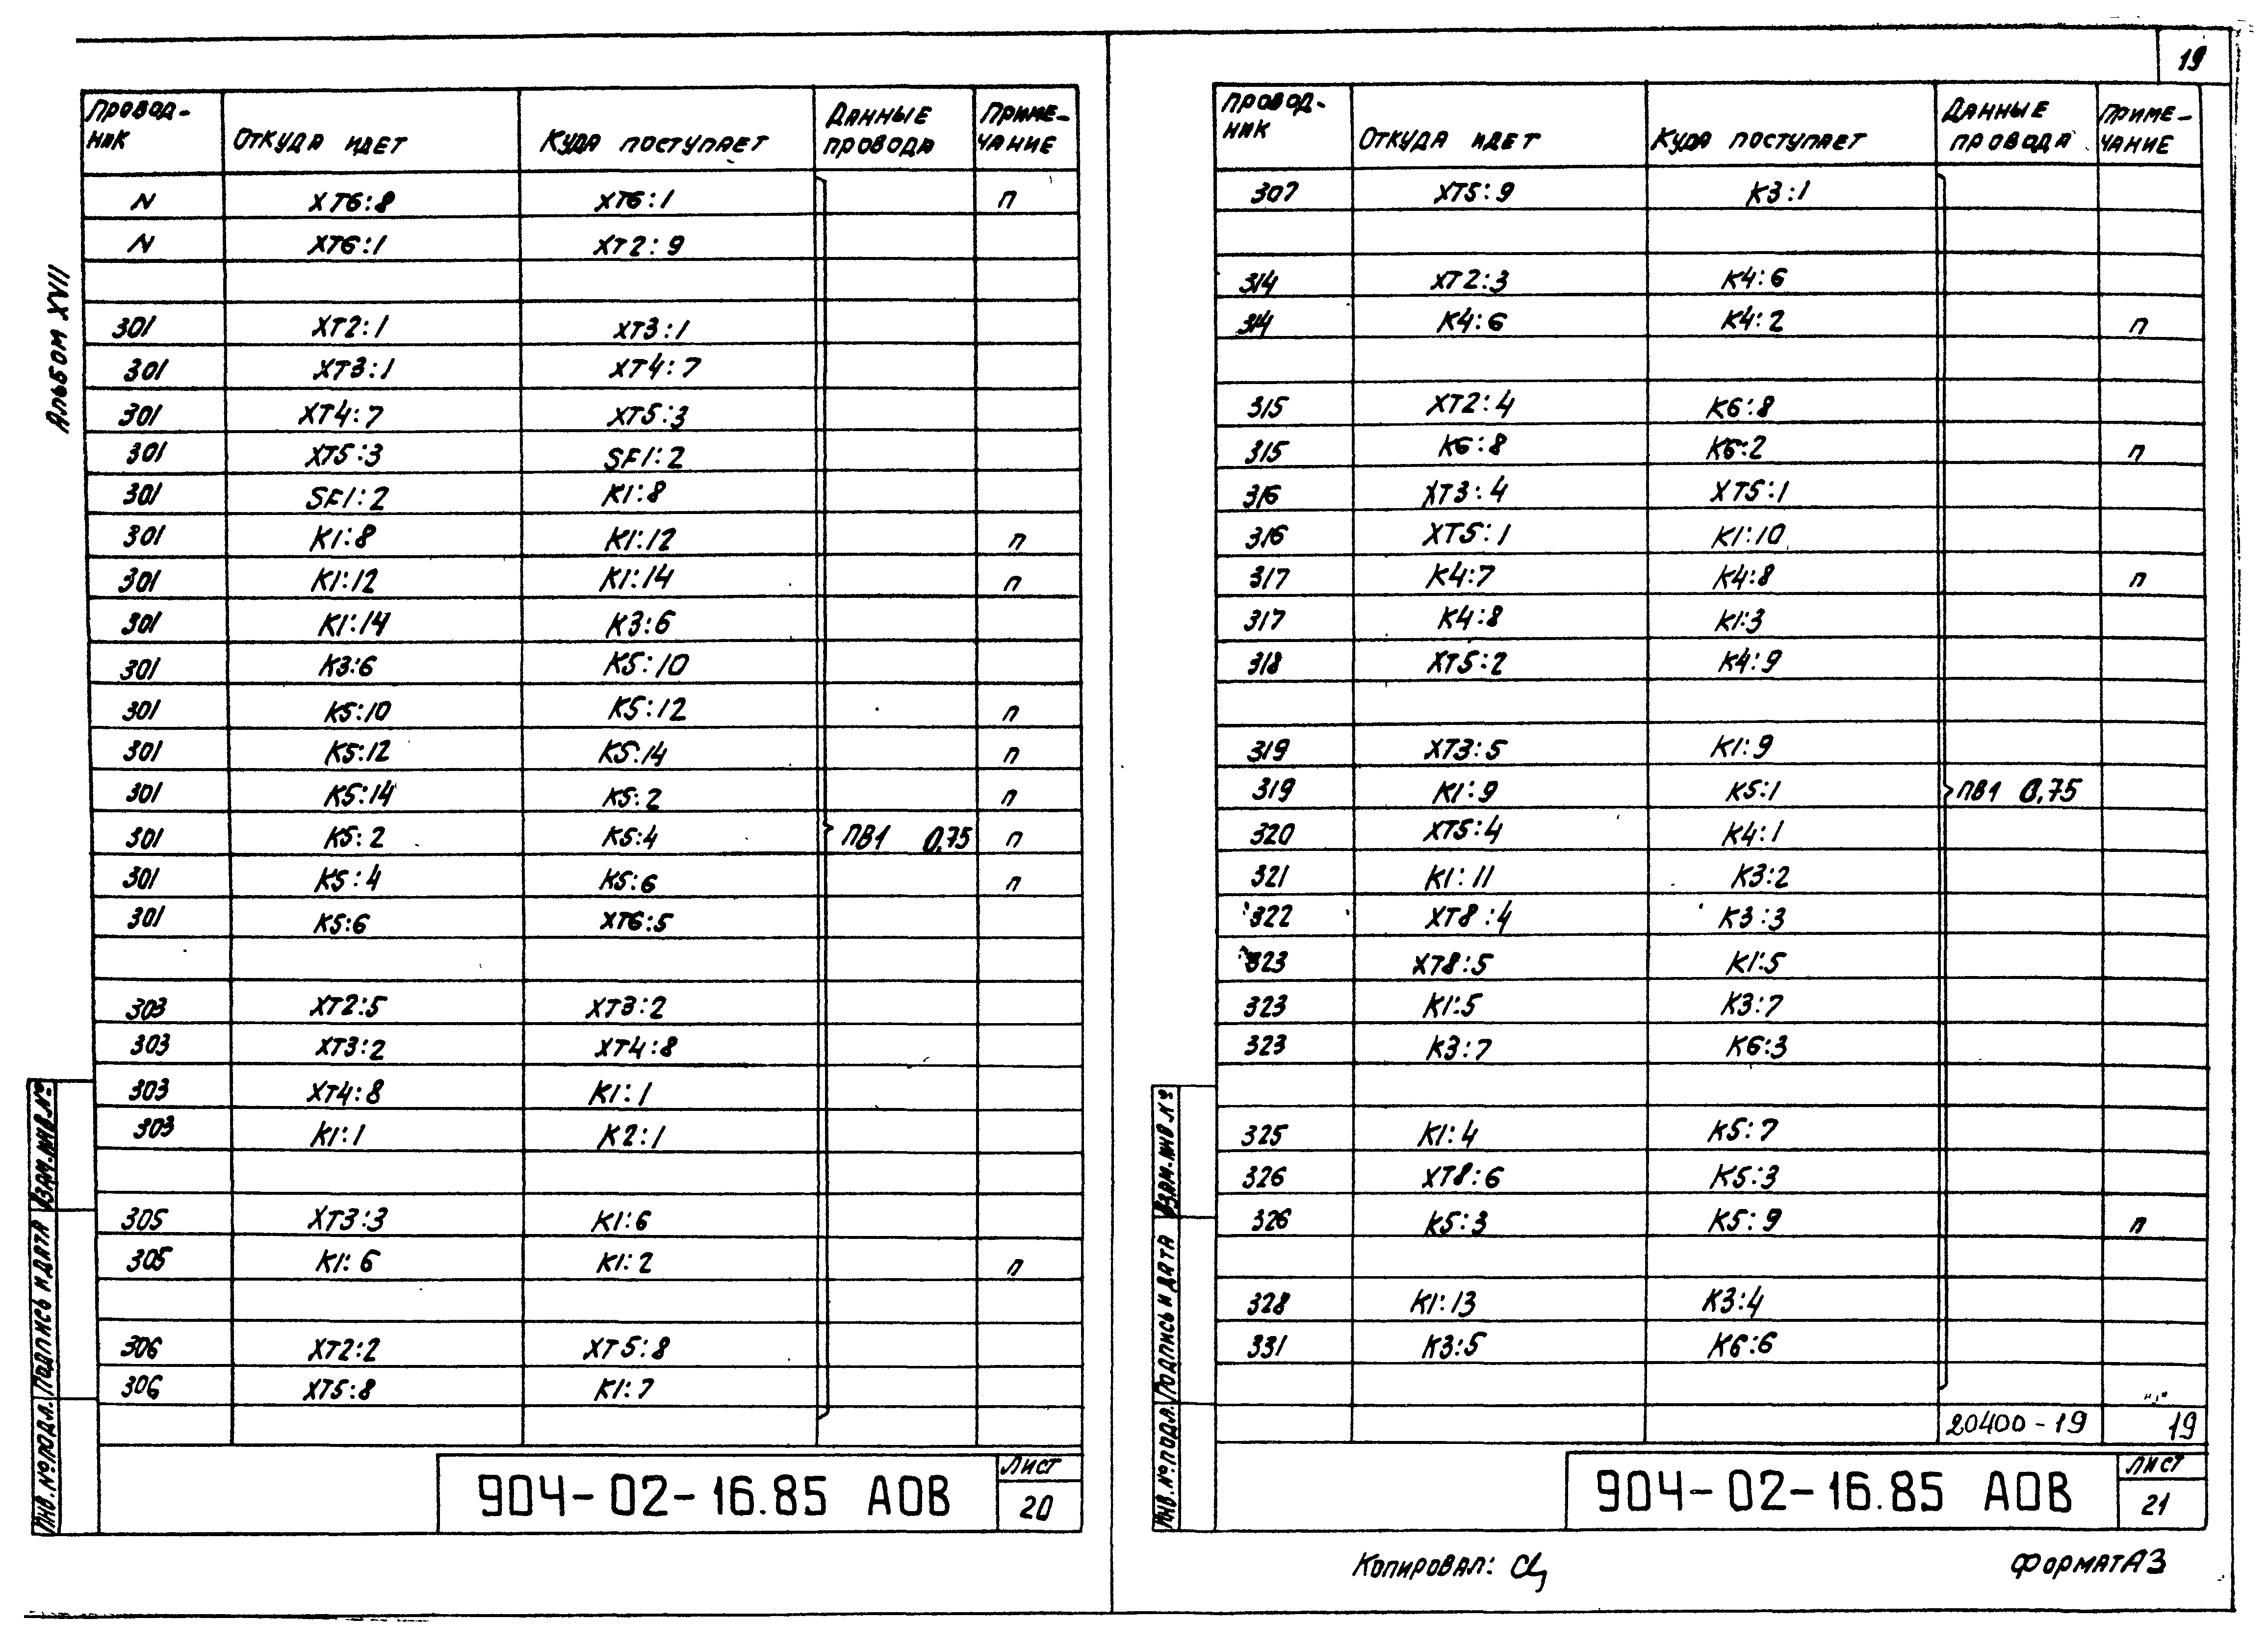 19
Альбом XVII
Провод-ник Откуда идет Куда поступает Данные провода Приме-чание
N XT6:8 XT6:1 п
N XT6:1 XT2:9
301 XT2:1 XT3:1
301 XT3:1 XT4:7
301 XT4:7 XT5:3
301 XT5:3 SF1:2
301 SF1:2 K1:8
301 K1:8 K1:12 п
301 K1:12 K1:14 п
301 K1:14 K3:6
301 K3:6 K5:10
301 K5:10 K5:12 п
301 K5:12 K5:14 п
301 K5:14 K5:2 п
301 K5:2 K5:4 ПВ1 0,75 п
301 K5:4 K5:6 п
301 K5:6 XT6:5
303 XT2:5 XT3:2
303 XT3:2 XT4:8
303 XT4:8 K1:1
303 K1:1 K2:1
305 XT3:3 K1:6
305 K1:6 K1:2 п
306 XT2:2 XT5:8
306 XT5:8 K1:7
904-02-16.85 АОВ
Лист
20
Инв.№подл. Подпись и дата Взам.инв.№
Провод-ник Откуда идет Куда поступает Данные провода Приме-чание
307 XT5:9 K3:1
314 XT2:3 K4:6
314 K4:6 K4:2 п
315 XT2:4 K6:8
315 K6:8 K6:2 п
316 XT3:4 XT5:1
316 XT5:1 K1:10
317 K4:7 K4:8 п
317 K4:8 K1:3
318 XT5:2 K4:9
319 XT3:5 K1:9
319 K1:9 K5:1 ПВ1 0,75
320 XT5:4 K4:1
321 K1:11 K3:2
322 XT8:4 K3:3
323 XT8:5 K1:5
323 K1:5 K3:7
323 K3:7 K6:3
325 K1:4 K5:7
326 XT8:6 K5:3
326 K5:3 K5:9 п
328 K1:13 K3:4
331 K3:5 K6:6
20400-19 19
904-02-16.85 АОВ
Лист
21
Инв.№подл. Подпись и дата Взам.инв.№
Копировал:
Формат А3